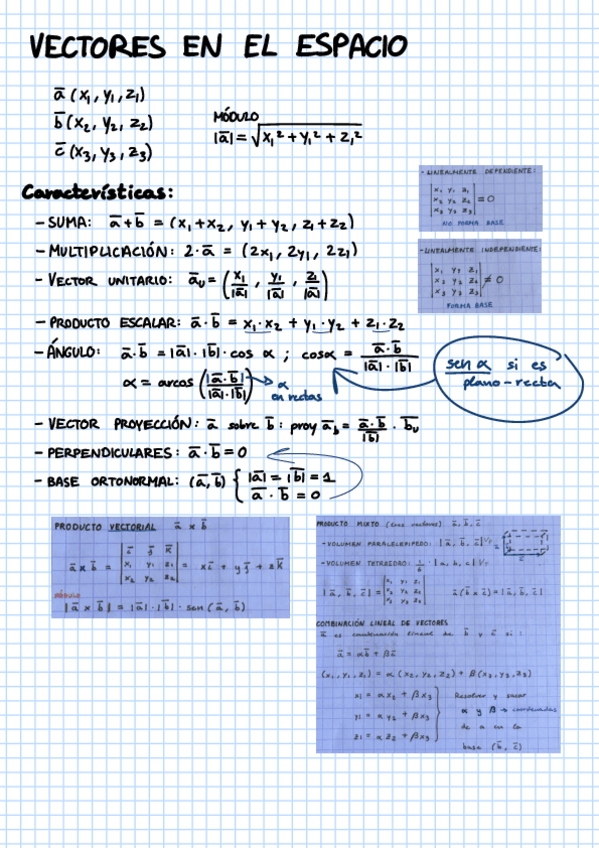 VECTORES EN EL ESPACIO
a̅ (x₁, y₁, z₁)
b̅ (x₂, y₂, z₂)
c̅ (x₃, y₃, z₃)
MÓDULO
|a̅| = √x₁² + y₁² + z₁²
Características:
- SUMA: a̅ + b̅ = (x₁+x₂, y₁+y₂, z₁+z₂)
- MULTIPLICACIÓN: 2·a̅ = (2x₁, 2y₁, 2z₁)
- VECTOR UNITARIO: a̅ᵤ = (x₁/|a̅|, y₁/|a̅|, z₁/|a̅|)
- LINEALMENTE DEPENDIENTE:
|x₁ y₁ z₁|
|x₂ y₂ z₂| = 0
|x₃ y₃ z₃|
NO FORMA BASE
- LINEALMENTE INDEPENDIENTE:
|x₁ y₁ z₁|
|x₂ y₂ z₂| ≠ 0
|x₃ y₃ z₃|
FORMA BASE
- PRODUCTO ESCALAR: a̅·b̅ = x₁·x₂ + y₁·y₂ + z₁·z₂
- ÁNGULO: a̅·b̅ = |a̅|·|b̅|·cos α ; cosα = a̅·b̅ / |a̅|·|b̅|
α = arcos (|a̅·b̅| / |a̅|·|b̅|) → α en rectas
sen α si es
plano-recta
- VECTOR PROYECCIÓN: a̅ sobre b̅: proy a̅_b = a̅·b̅ / |b̅| · b̅ᵤ
- PERPENDICULARES: a̅·b̅ = 0
- BASE ORTONORMAL: (a̅, b̅) { |a̅| = |b̅| = 1
a̅ · b̅ = 0
PRODUCTO VECTORIAL a̅ x b̅
|i̅ j̅ k̅|
a̅ x b̅ = |x₁ y₁ z₁| = xi̅ + yj̅ + zk̅
|x₂ y₂ z₂|
MÓDULO
|a̅ x b̅| = |a̅|·|b̅|·sen (a̅, b̅)
PRODUCTO MIXTO (tres vectores) a̅, b̅, c̅
- VOLUMEN PARALELEPÍPEDO: |a̅, b̅, c̅|
- VOLUMEN TETRAEDRO: 1/6 · |a, b, c|
|x₁ y₁ z₁|
|a̅, b̅, c̅| = |x₂ y₂ z₂| a̅(b̅ x c̅) = |a̅, b̅, c̅|
|x₃ y₃ z₃|
COMBINACIÓN LINEAL DE VECTORES
a̅ es combinación lineal de b̅ y c̅ si:
a̅ = αb̅ + βc̅
(x₁, y₁, z₁) = α(x₂, y₂, z₂) + β(x₃, y₃, z₃)
x₁ = αx₂ + βx₃
y₁ = αy₂ + βy₃
z₁ = αz₂ + βx₃
Resolver y sacar
α y β → coordenadas
de a en la
base (b̅, c̅)